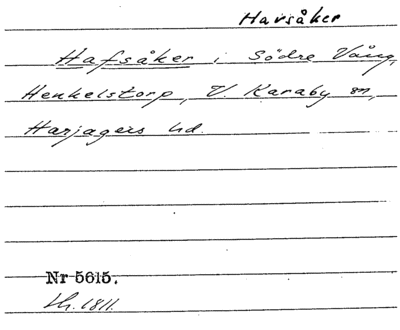 Havsåker
Hafsåker i Södre Vång,
Henkelstorp, V. Karaby sn,
Harjagers hd.
Nr 5615.
1811.